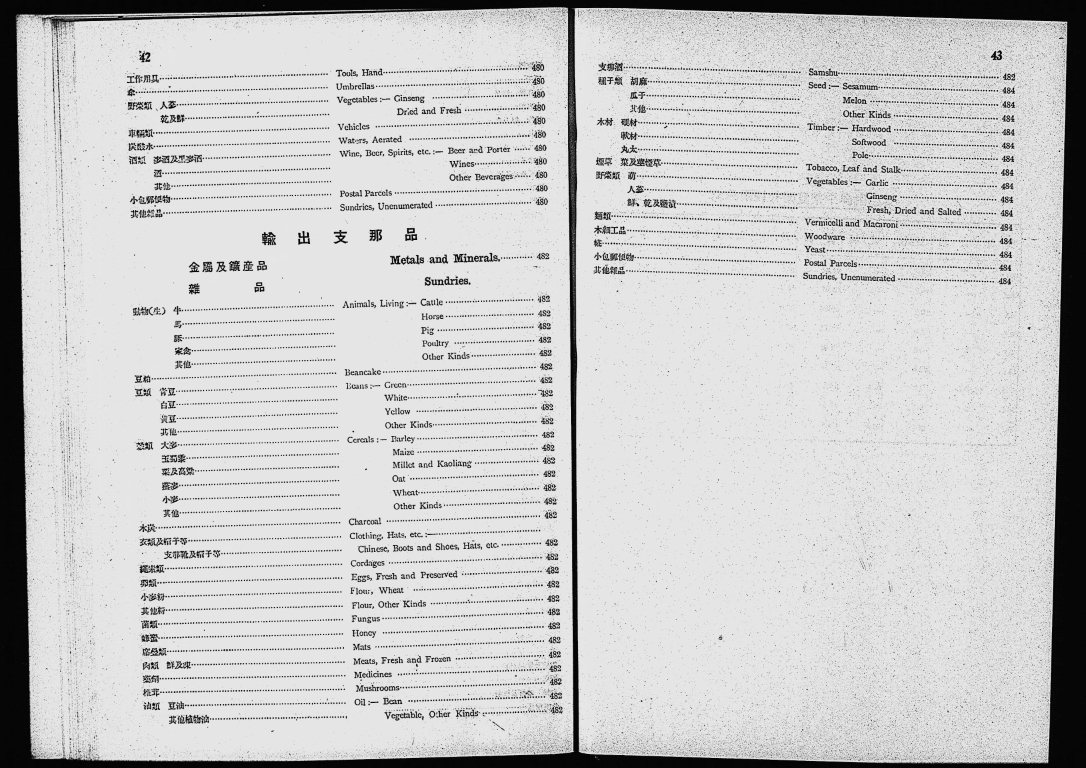 42
工作用具 Tools, Hand 480
傘 Umbrellas 480
野菜類 人蔘 Vegetables :— Ginseng 480
乾及鮮 Dried and Fresh 480
車輛類 Vehicles 480
炭酸水 Waters, Aerated 480
酒類 麥酒及黑麥酒 Wine, Beer, Spirits, etc. :— Beer and Porter 480
酒 Wines 480
其他 Other Beverages 480
小包郵便物 Postal Parcels 480
其他雜品 Sundries, Unenumerated 480
輸出支那品
金屬及鑛産品 Metals and Minerals. 482
雜品 Sundries.
動物(生) 牛 Animals, Living :— Cattle 482
馬 Horse 482
豚 Pig 482
家禽 Poultry 482
其他 Other Kinds 482
豆粕 Beancake 482
豆類 青豆 Beans :— Green 482
白豆 White 482
黃豆 Yellow 482
其他 Other Kinds 482
穀類 大麥 Cereals :— Barley 482
玉蜀黍 Maize 482
粟及高粱 Millet and Kaoliang 482
燕麥 Oat 482
小麥 Wheat 482
其他 Other Kinds 482
木炭 Charcoal 482
衣類及帽子等 Clothing, Hats, etc. :—
支那靴及帽子等 Chinese, Boots and Shoes, Hats, etc. 482
繩索類 Cordages 482
卵類 Eggs, Fresh and Preserved 482
小麥粉 Flour, Wheat 482
其他粉 Flour, Other Kinds 482
菌類 Fungus 482
蜂蜜 Honey 482
席疊類 Mats 482
肉類 鮮及凍 Meats, Fresh and Frozen 482
藥劑 Medicines 482
松茸 Mushrooms 482
油類 豆油 Oil :— Bean 482
其他植物油 Vegetable, Other Kinds 482
43
支那酒 Samshu 482
種子類 胡麻 Seed :— Sesamum 484
瓜子 Melon 484
其他 Other Kinds 484
木材 硬材 Timber :— Hardwood 484
軟材 Softwood 484
丸太 Pole 484
煙草 葉及莖煙草 Tobacco, Leaf and Stalk 484
野菜類 Vegetables :— Garlic 484
人蔘 Ginseng 484
鮮、乾及鹽漬 Fresh, Dried and Salted 484
麵類 Vermicelli and Macaroni 484
木細工品 Woodware 484
Yeast 484
小包郵便物 Postal Parcels 484
其他雜品 Sundries, Unenumerated 484